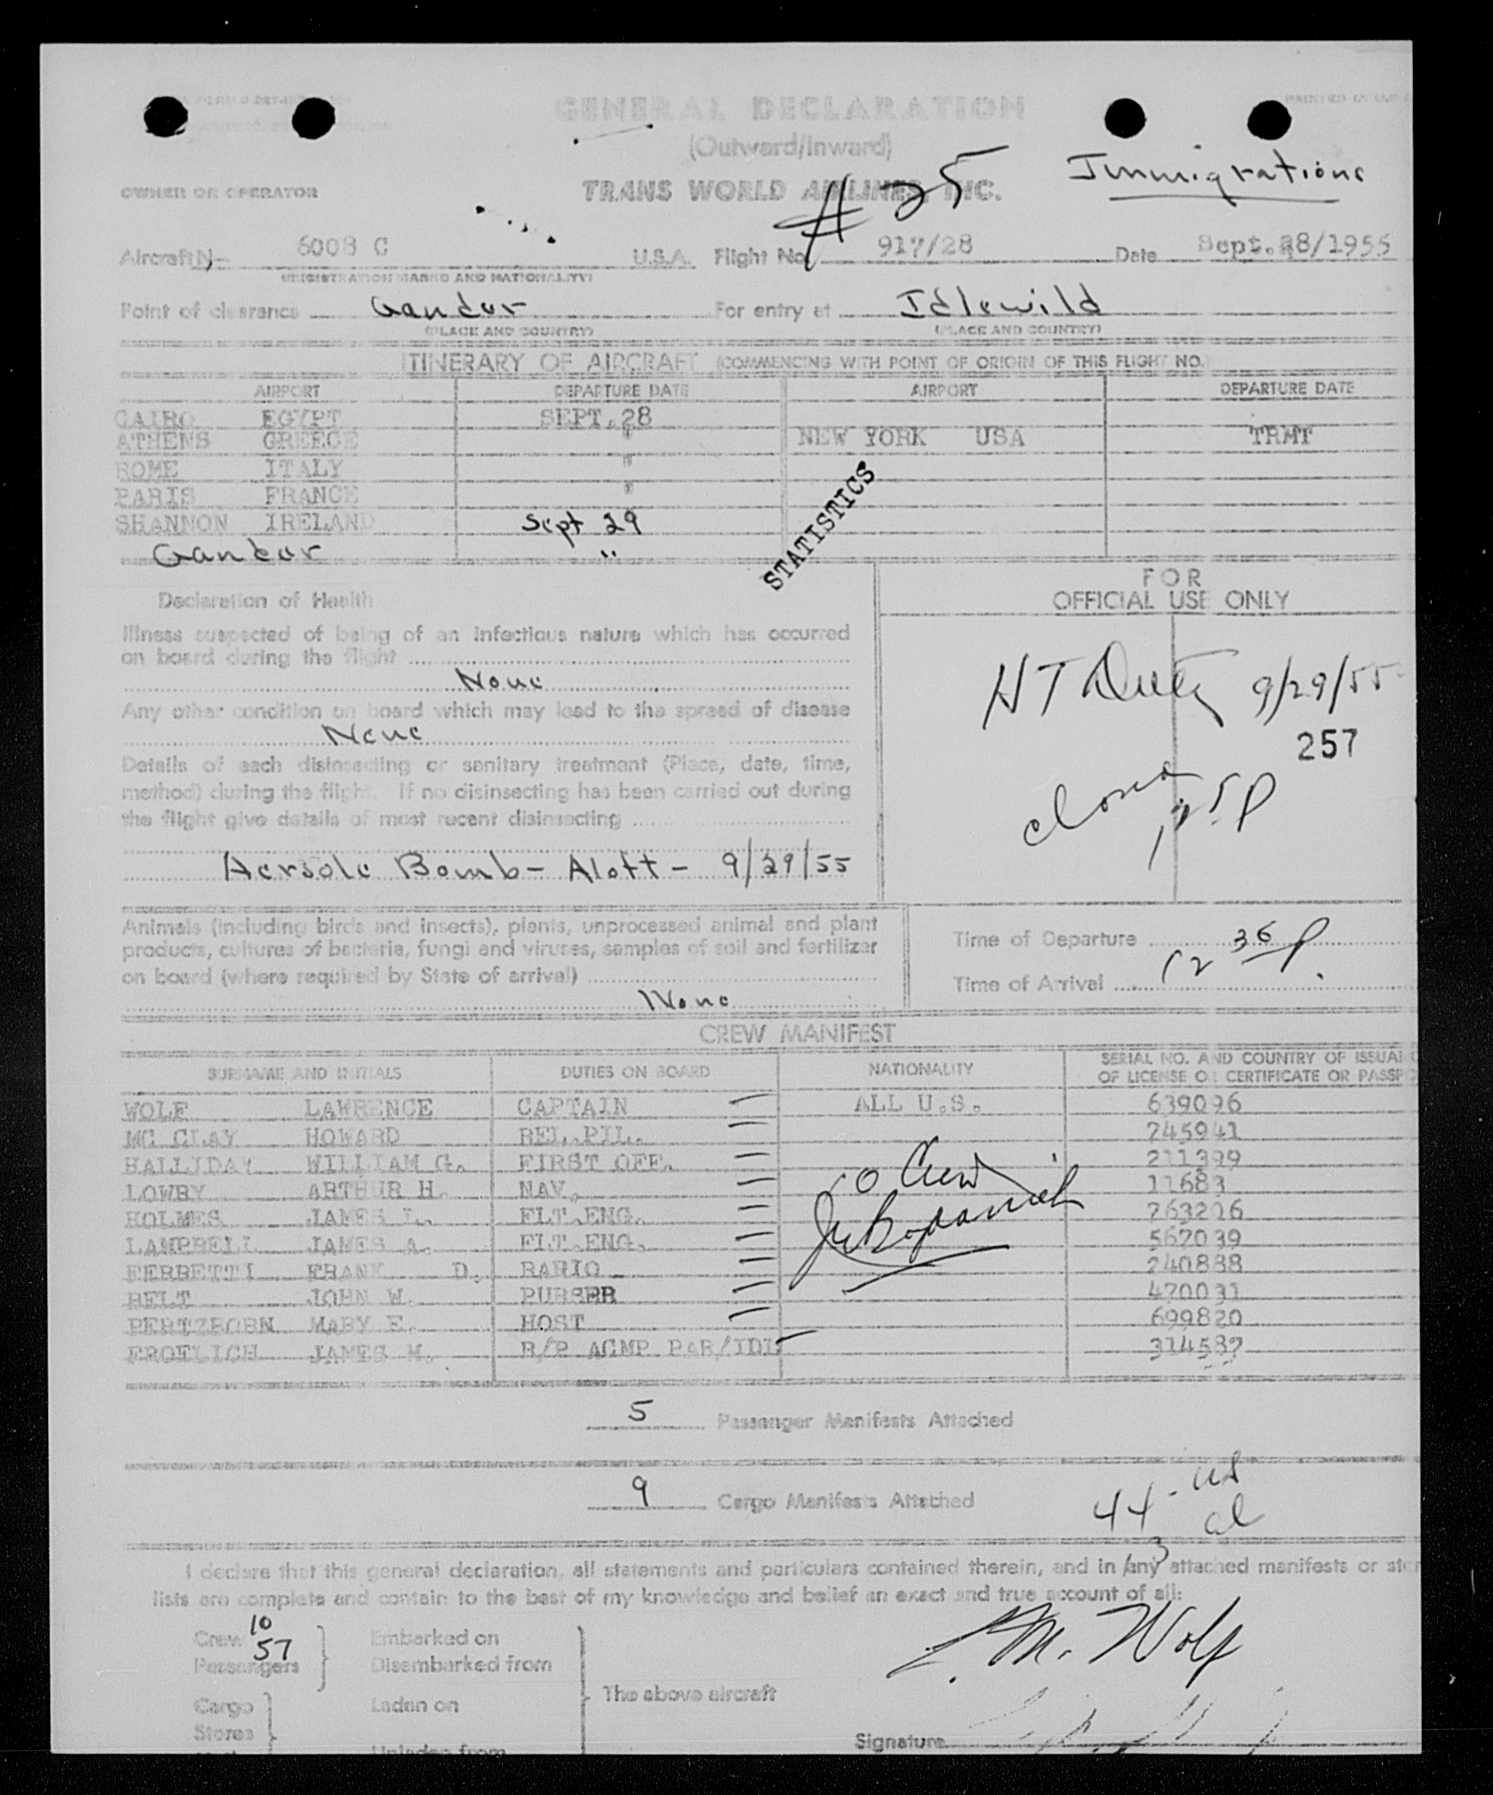 GENERAL DECLARATION
(Outward/Inward)
OWNER OR OPERATOR
TRANS WORLD AIRLINES, INC.
#25
Immigrations
Aircraft N- 6008 C U.S.A. Flight No. 917/28 Date Sept. 28/1955
(REGISTRATION MARKS AND NATIONALITY)
Point of clearance Gander For entry at Idlewild
(PLACE AND COUNTRY) (PLACE AND COUNTRY)
ITINERARY OF AIRCRAFT (COMMENCING WITH POINT OF ORIGIN OF THIS FLIGHT NO.)
AIRPORT DEPARTURE DATE AIRPORT DEPARTURE DATE
CAIRO EGYPT SEPT. 28
ATHENS GREECE " NEW YORK USA TRMT
ROME ITALY "
PARIS FRANCE "
SHANNON IRELAND Sept 29
Gander "
STATISTICS
FOR
OFFICIAL USE ONLY
Declaration of Health
Illness suspected of being of an infectious nature which has occurred
on board during the flight
None
Any other condition on board which may lead to the spread of disease
None
Details of each disinsecting or sanitary treatment (Place, date, time,
method) during the flight. If no disinsecting has been carried out during
the flight give details of most recent disinsecting
Aersole Bomb - Aloft - 9/29/55
HT 9/29/55
257
Animals (including birds and insects), plants, unprocessed animal and plant
products, cultures of bacteria, fungi and viruses, samples of soil and fertilizer
on board (where required by State of arrival)
None
Time of Departure
Time of Arrival 12 36 P.
CREW MANIFEST
SURNAME AND INITIALS DUTIES ON BOARD NATIONALITY SERIAL NO. AND COUNTRY OF
OF LICENSE OR CERTIFICATE OR
WOLF LAWRENCE CAPTAIN ALL U.S. 639096
MC CLAY HOWARD REL.PIL. 245941
HALLIDAY WILLIAM G. FIRST OFF. 211399
LOWRY ARTHUR H. NAV. 11683
HOLMES JAMES L. FLT.ENG. 263206
LAMPRELL JAMES A. FLT.ENG. 567039
FERRETTI FRANK D. RADIO 240888
BELT JOHN W. PURSER 470031
PERTZBORN MARY E. HOST 699820
FROELICH JAMES M. R/P ACMP PAR/IDL 314587
10 Crew
5 Passenger Manifests Attached
9 Cargo Manifests Attached
44 - US
I declare that this general declaration, all statements and particulars contained therein, and in any attached manifests or
lists are complete and contain to the best of my knowledge and belief an exact and true account of all:
Crew 10
Passengers 57
Embarked on
Disembarked from
Cargo
Stores
Laden on
Unladen from
The above aircraft
L. M. Wolf
Signature